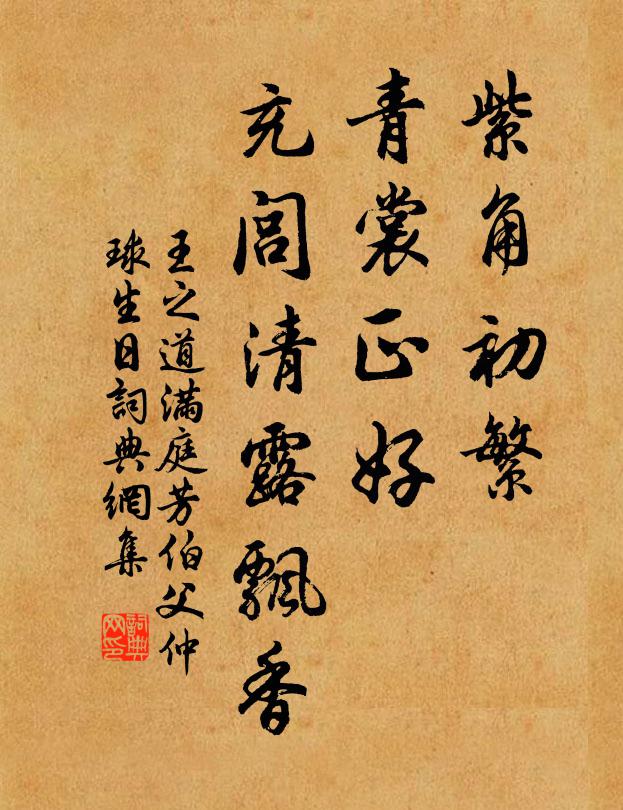 紫角初繁
青裳正好
充闾清露飄香
王之道滿庭芳伯父仲
球生日詞典網集
詞典
网印